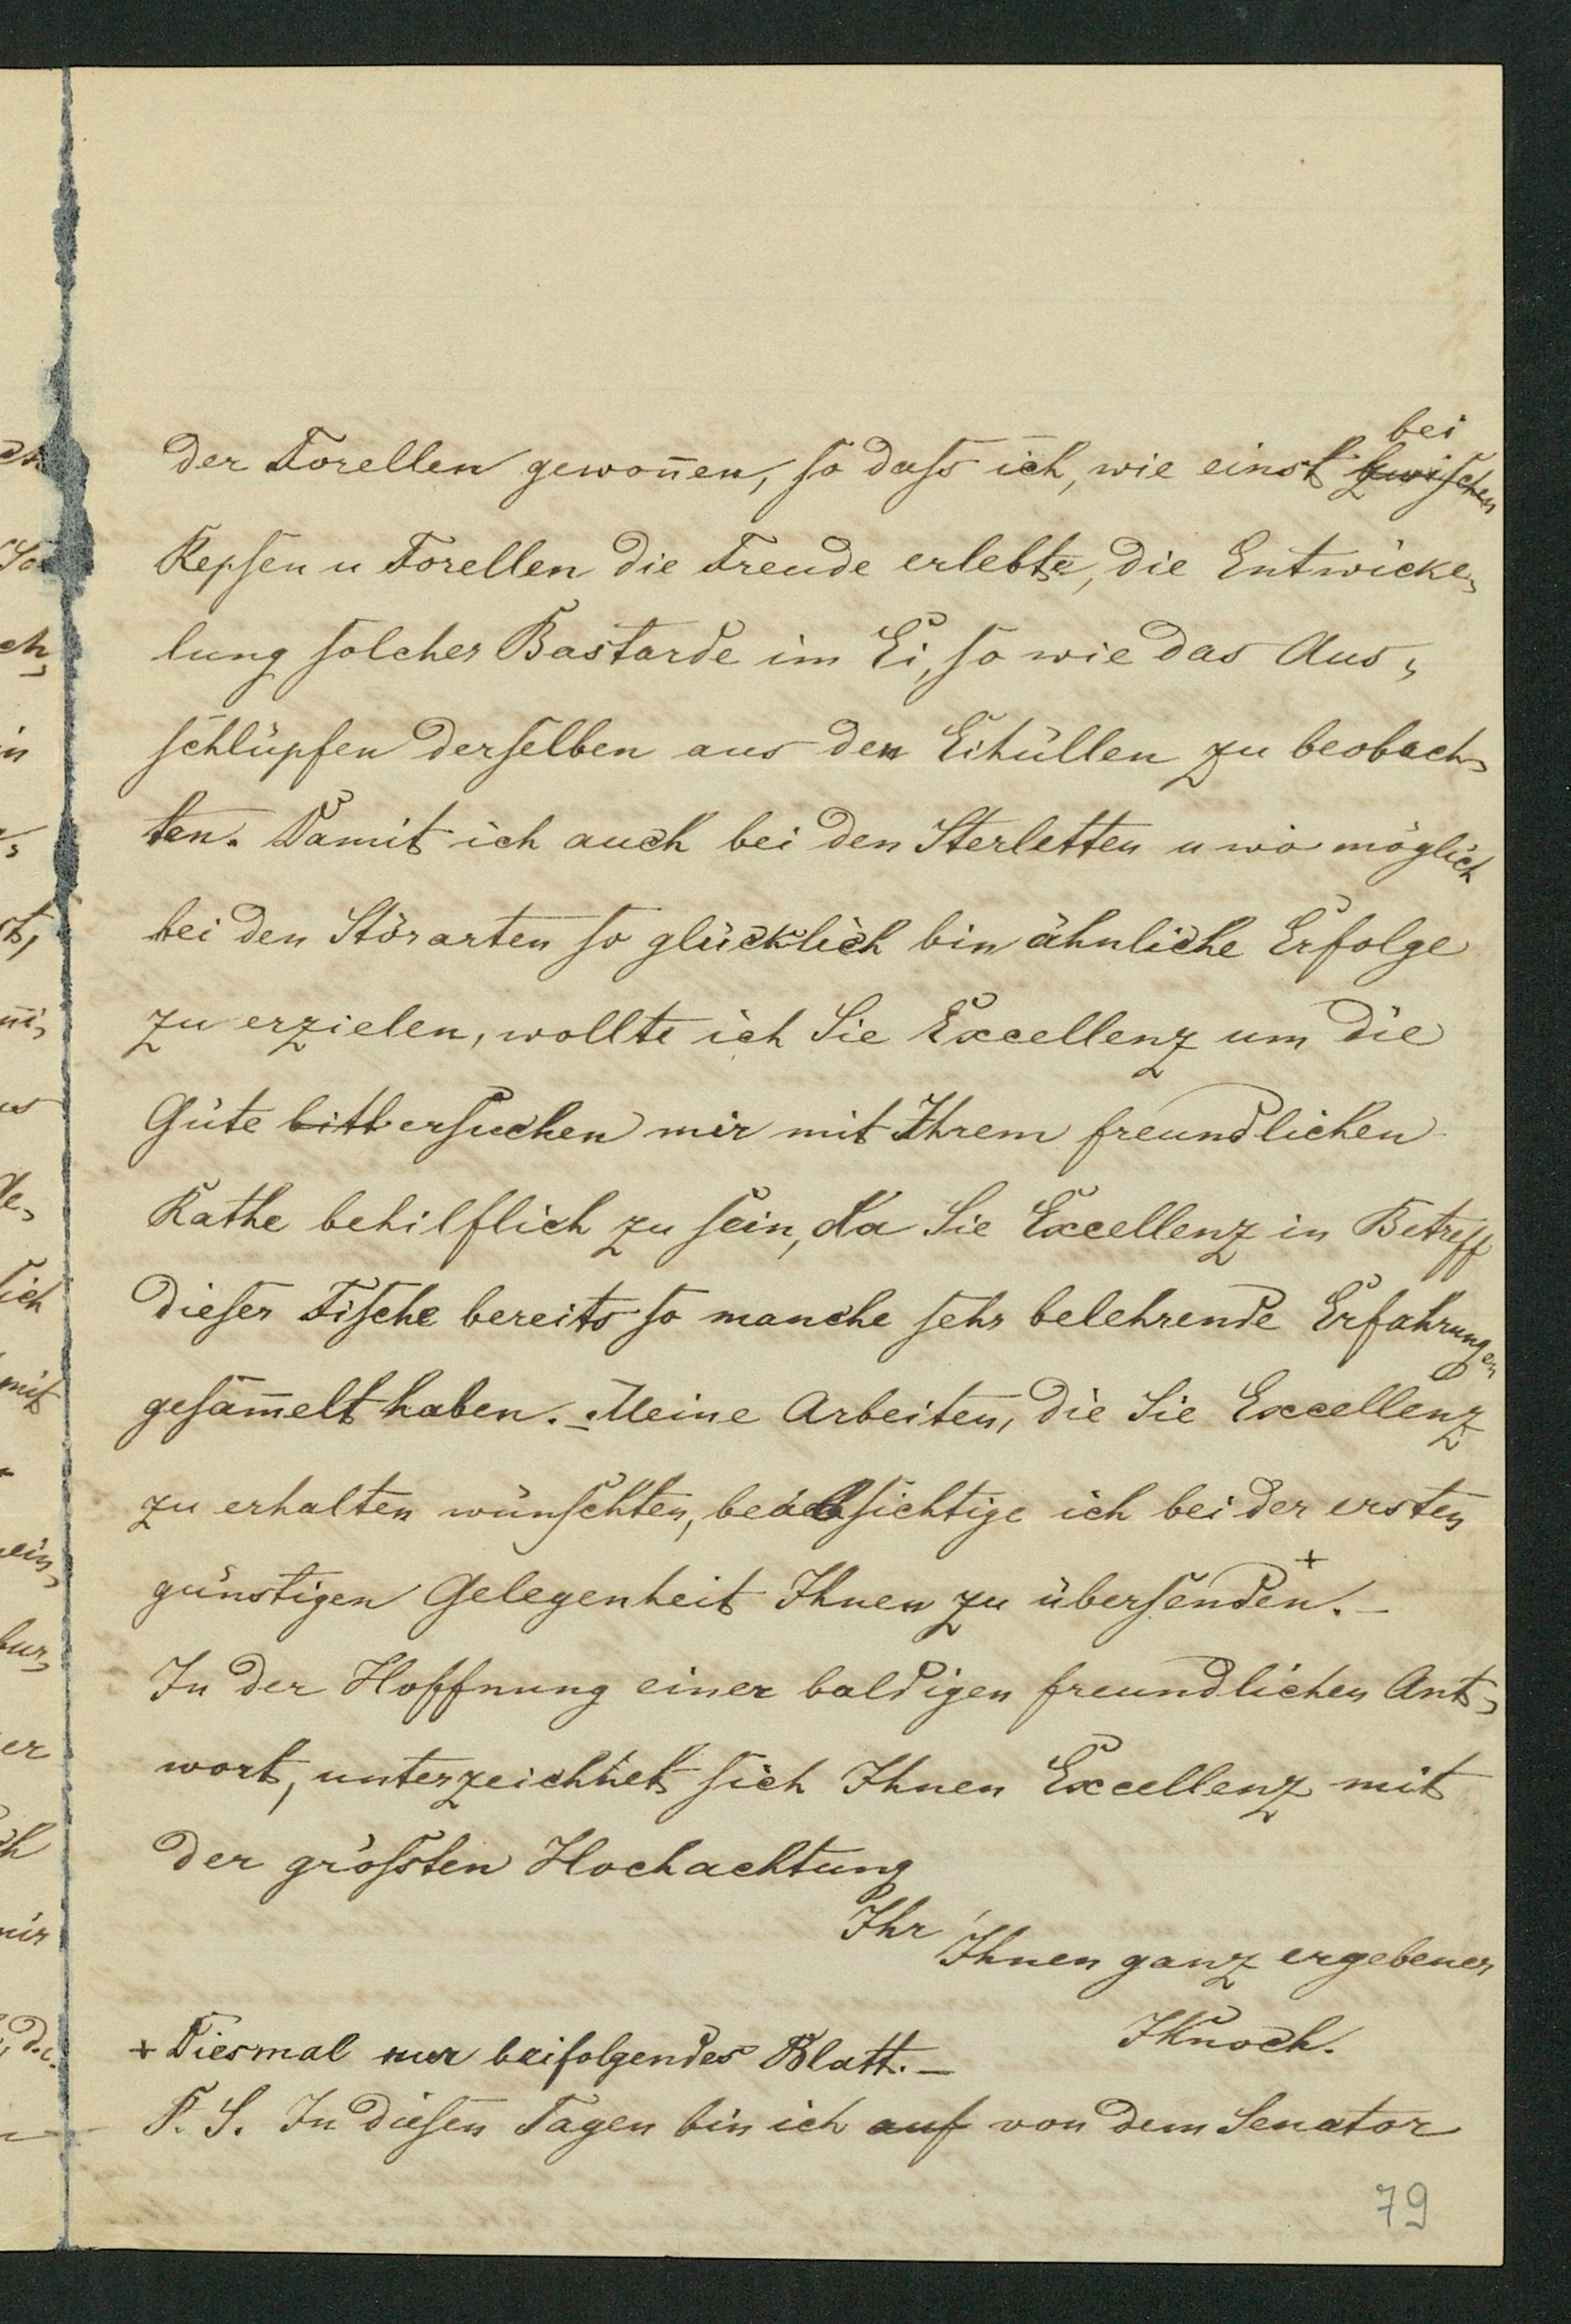 der Forellen gewon̄en, so dass ich, wie einst ~~zwischen~~ bei
Repsen u Forellen die Freude erlebte, die Entwicke-
lung solcher Bastarde im Ei, so wie das Aus-
schlüpfen derselben aus den Eihüllen zu beobach-
ten. Damit ich auch bei den Sterletten u wo möglich
bei den Störarten so glücklich bin ähnliche Erfolge
zu erzielen, wollte ich Sie Excellenz um die
Güte ~~bitt~~ ersuchen mir mit Ihrem freundlichen
Rathe behilflich zu sein, da Sie Excellenz in Betreff
dieser Fische bereits so manche sehr belehrende Erfahrungen
gesam̄elt haben. – Meine Arbeiten, die Sie Excellenz
zu erhalten wünschten, beabsichtige ich bei der ersten
günstigen Gelegenheit Ihnen zu übersenden.+ –
In der Hoffnung einer baldigen freundlichen Ant-
wort, unterzeichnet sich Ihnen Excellenz mit
der grössten Hochachtung
Ihr
Ihnen ganz ergebener
JKnoch.
+ Diesmal nur beifolgendes Blatt. –
P. S. In diesen Tagen bin ich ~~auf~~ von dem Senator
79